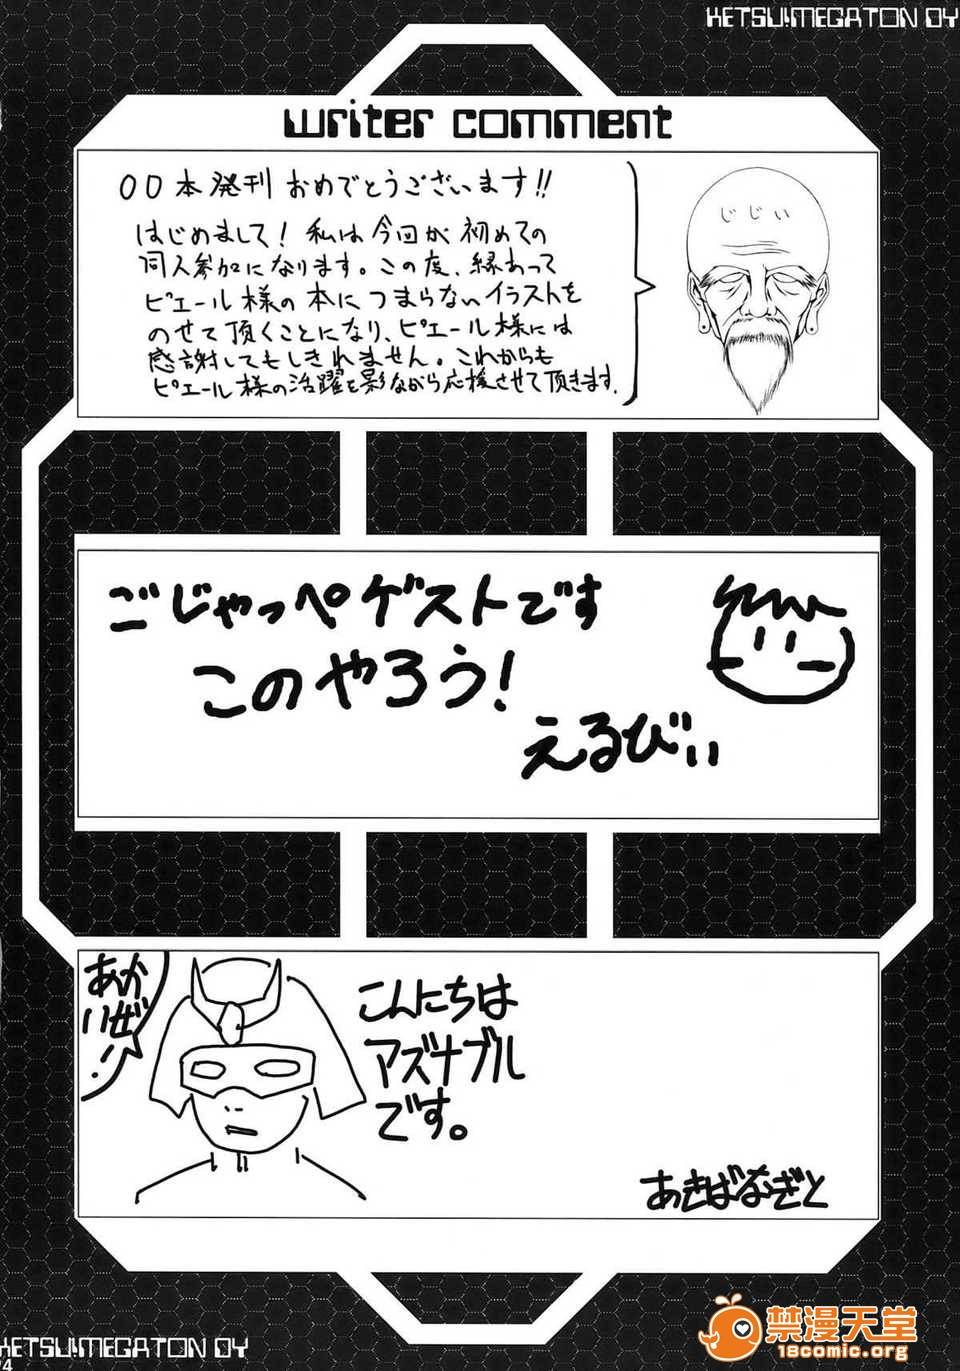 KETSU!MEGATON OY
writer comment
OO本発刊 おめでとうございます!!
はじめまして! 私は今回が初めての
同人参加になります。この度、縁あって
ピエール様の本につまらないイラストを
のせて頂くことになり、ピエール様には
感謝してもしきれません。これからも
ピエール様の活躍を影ながら応援させて頂きます。
じじい
ごじゃっぺゲストです
このやろう!
えるびぃ
あか
いぜ!
こんにちは
アズナブル
です。
あきばなぎと
禁漫天堂
18comic.org
KETSU!MEGATON OY